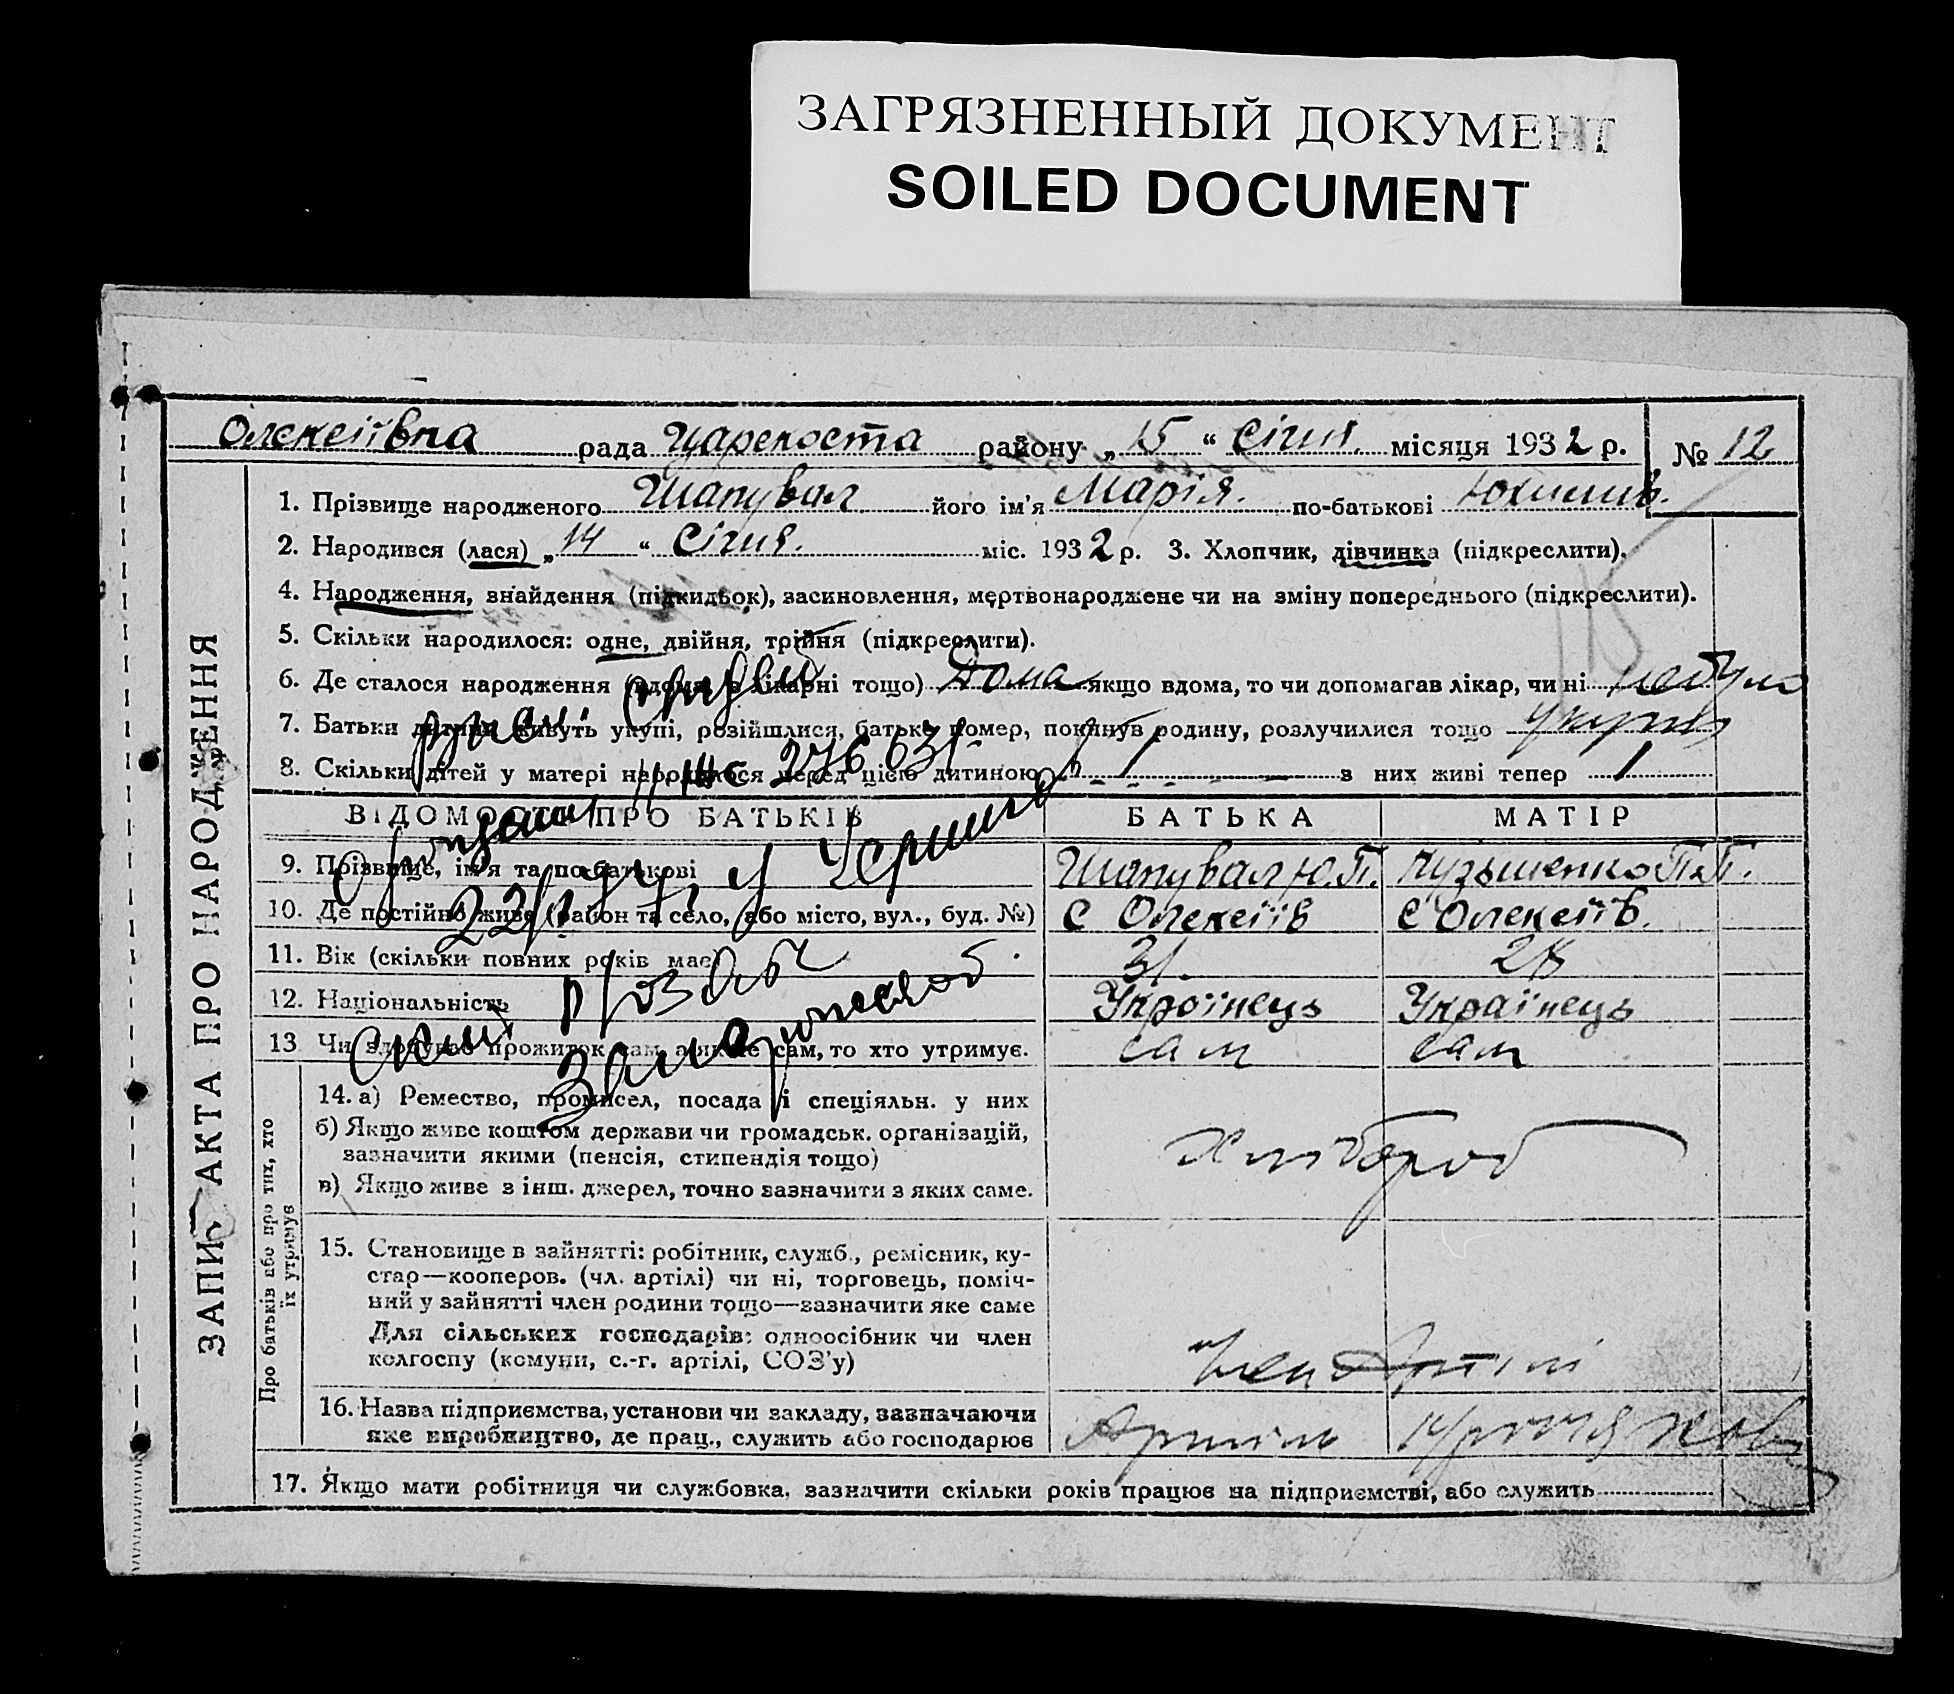 ЗАГРЯЗНЕННЫЙ ДОКУМЕНТ
SOILED DOCUMENT
Олекеіївка рада району „ 15 “ Січня місяця 1932 р. № 12
ЗАПИС АКТА ПРО НАРОДЖЕННЯ
1. Прізвище народженого Шапувал його ім'я Марія. по-батькові
2. Народився (лася) „ 14 “ Січня. міс. 1932 р. 3. Хлопчик, дівчинка (підкреслити).
4. Народження, знайдення (підкидьок), засиновлення, мертвонароджене чи на зміну попереднього (підкреслити).
5. Скільки народилося: одне, двійня, трійня (підкреслити).
6. Де сталося народження (вдома, в лікарні тощо) Дома якщо вдома, то чи допомагав лікар, чи ні небуло
7. Батьки дитини живуть укупі, розійшлися, батько помер, покинув родину, розлучилися тощо укупі
8. Скільки дітей у матері народилося перед цією дитиною 1 з них живі тепер 1
ВІДОМОСТІ ПРО БАТЬКІВ БАТЬКА МАТІР
9. Прізвище, ім'я та по-батькові Шапувал Ю.П. Кузьменко П.П.
10. Де постійно живе (район та село, або місто, вул., буд. №) С Олекеіїв С Олекеіїв.
11. Вік (скільки повних років має) 31. 28
12. Національність Украінець Українець
13. Чи здобуває прожиток сам, а як не сам, то хто утримує. сам сам
Про батьків або про тих, хто
їх утримує
14. а) Ремество, промисел, посада і спеціяльн. у них
б) Якщо живе коштом держави чи громадськ. організацій,
зазначити якими (пенсія, стипендія тощо)
в) Якщо живе з інш. джерел, точно зазначити з яких саме.
Хлібороб
15. Становище в зайнятті: робітник, служб., ремісник, ку-
стар—кооперов. (чл. артілі) чи ні, торговець, поміч-
ний у зайнятті член родини тощо—зазначити яке саме
Для сільських господарів: одноосібник чи член
колгоспу (комуни, с.-г. артілі, СОЗ'у)
Член Артілі
16. Назва підприємства, установи чи закладу, зазначаючи
яке виробництво, де прац., служить або господарює
17. Якщо мати робітниця чи службовка, зазначити скільки років працює на підприємстві, або служить